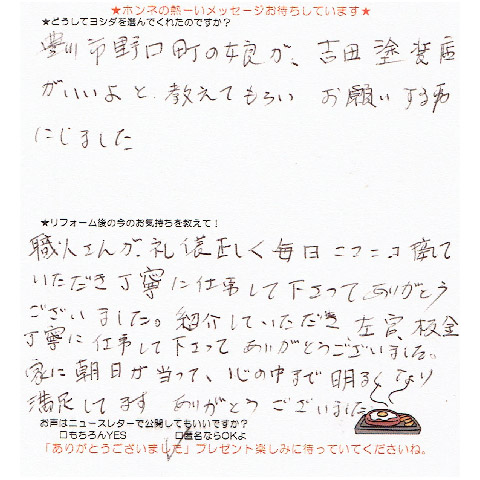 ★ホンネの熱ーいメッセージお待ちしています★
★どうしてヨシダを選んでくれたのですか？
豊川市野口町の娘が、吉田塗装店
がいいよと教えてもらい お願いする事
にじました
★リフォーム後の今のお気持ちを教えて！
職人さんが、礼儀正しく毎日ニコニコ接して
いただき丁寧に仕事して下さって ありがとう
ございました。紹介していただき 左官、板金
丁寧に仕事して下さって ありがとうございました。
家に朝日が当って、心の中まで明るくなり
満足してます ありがとうございました
お声はニュースレターで公開してもいいですか？
□もちろんYES □匿名ならOKよ
「ありがとうございました」プレゼント楽しみに待っていてくださいね。